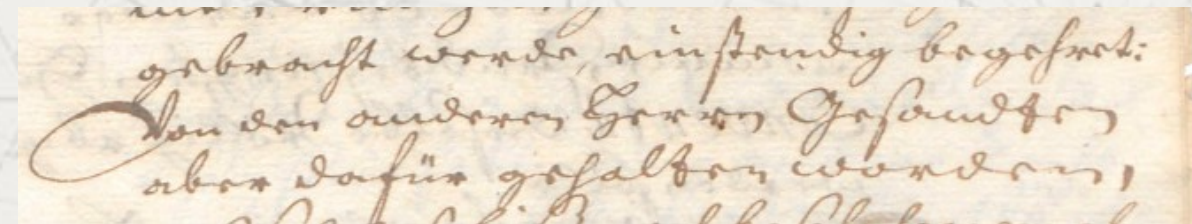 gebracht werde, einstendig begehret:
Von den anderen Herren Gesandten
aber dafür gehalten worden,